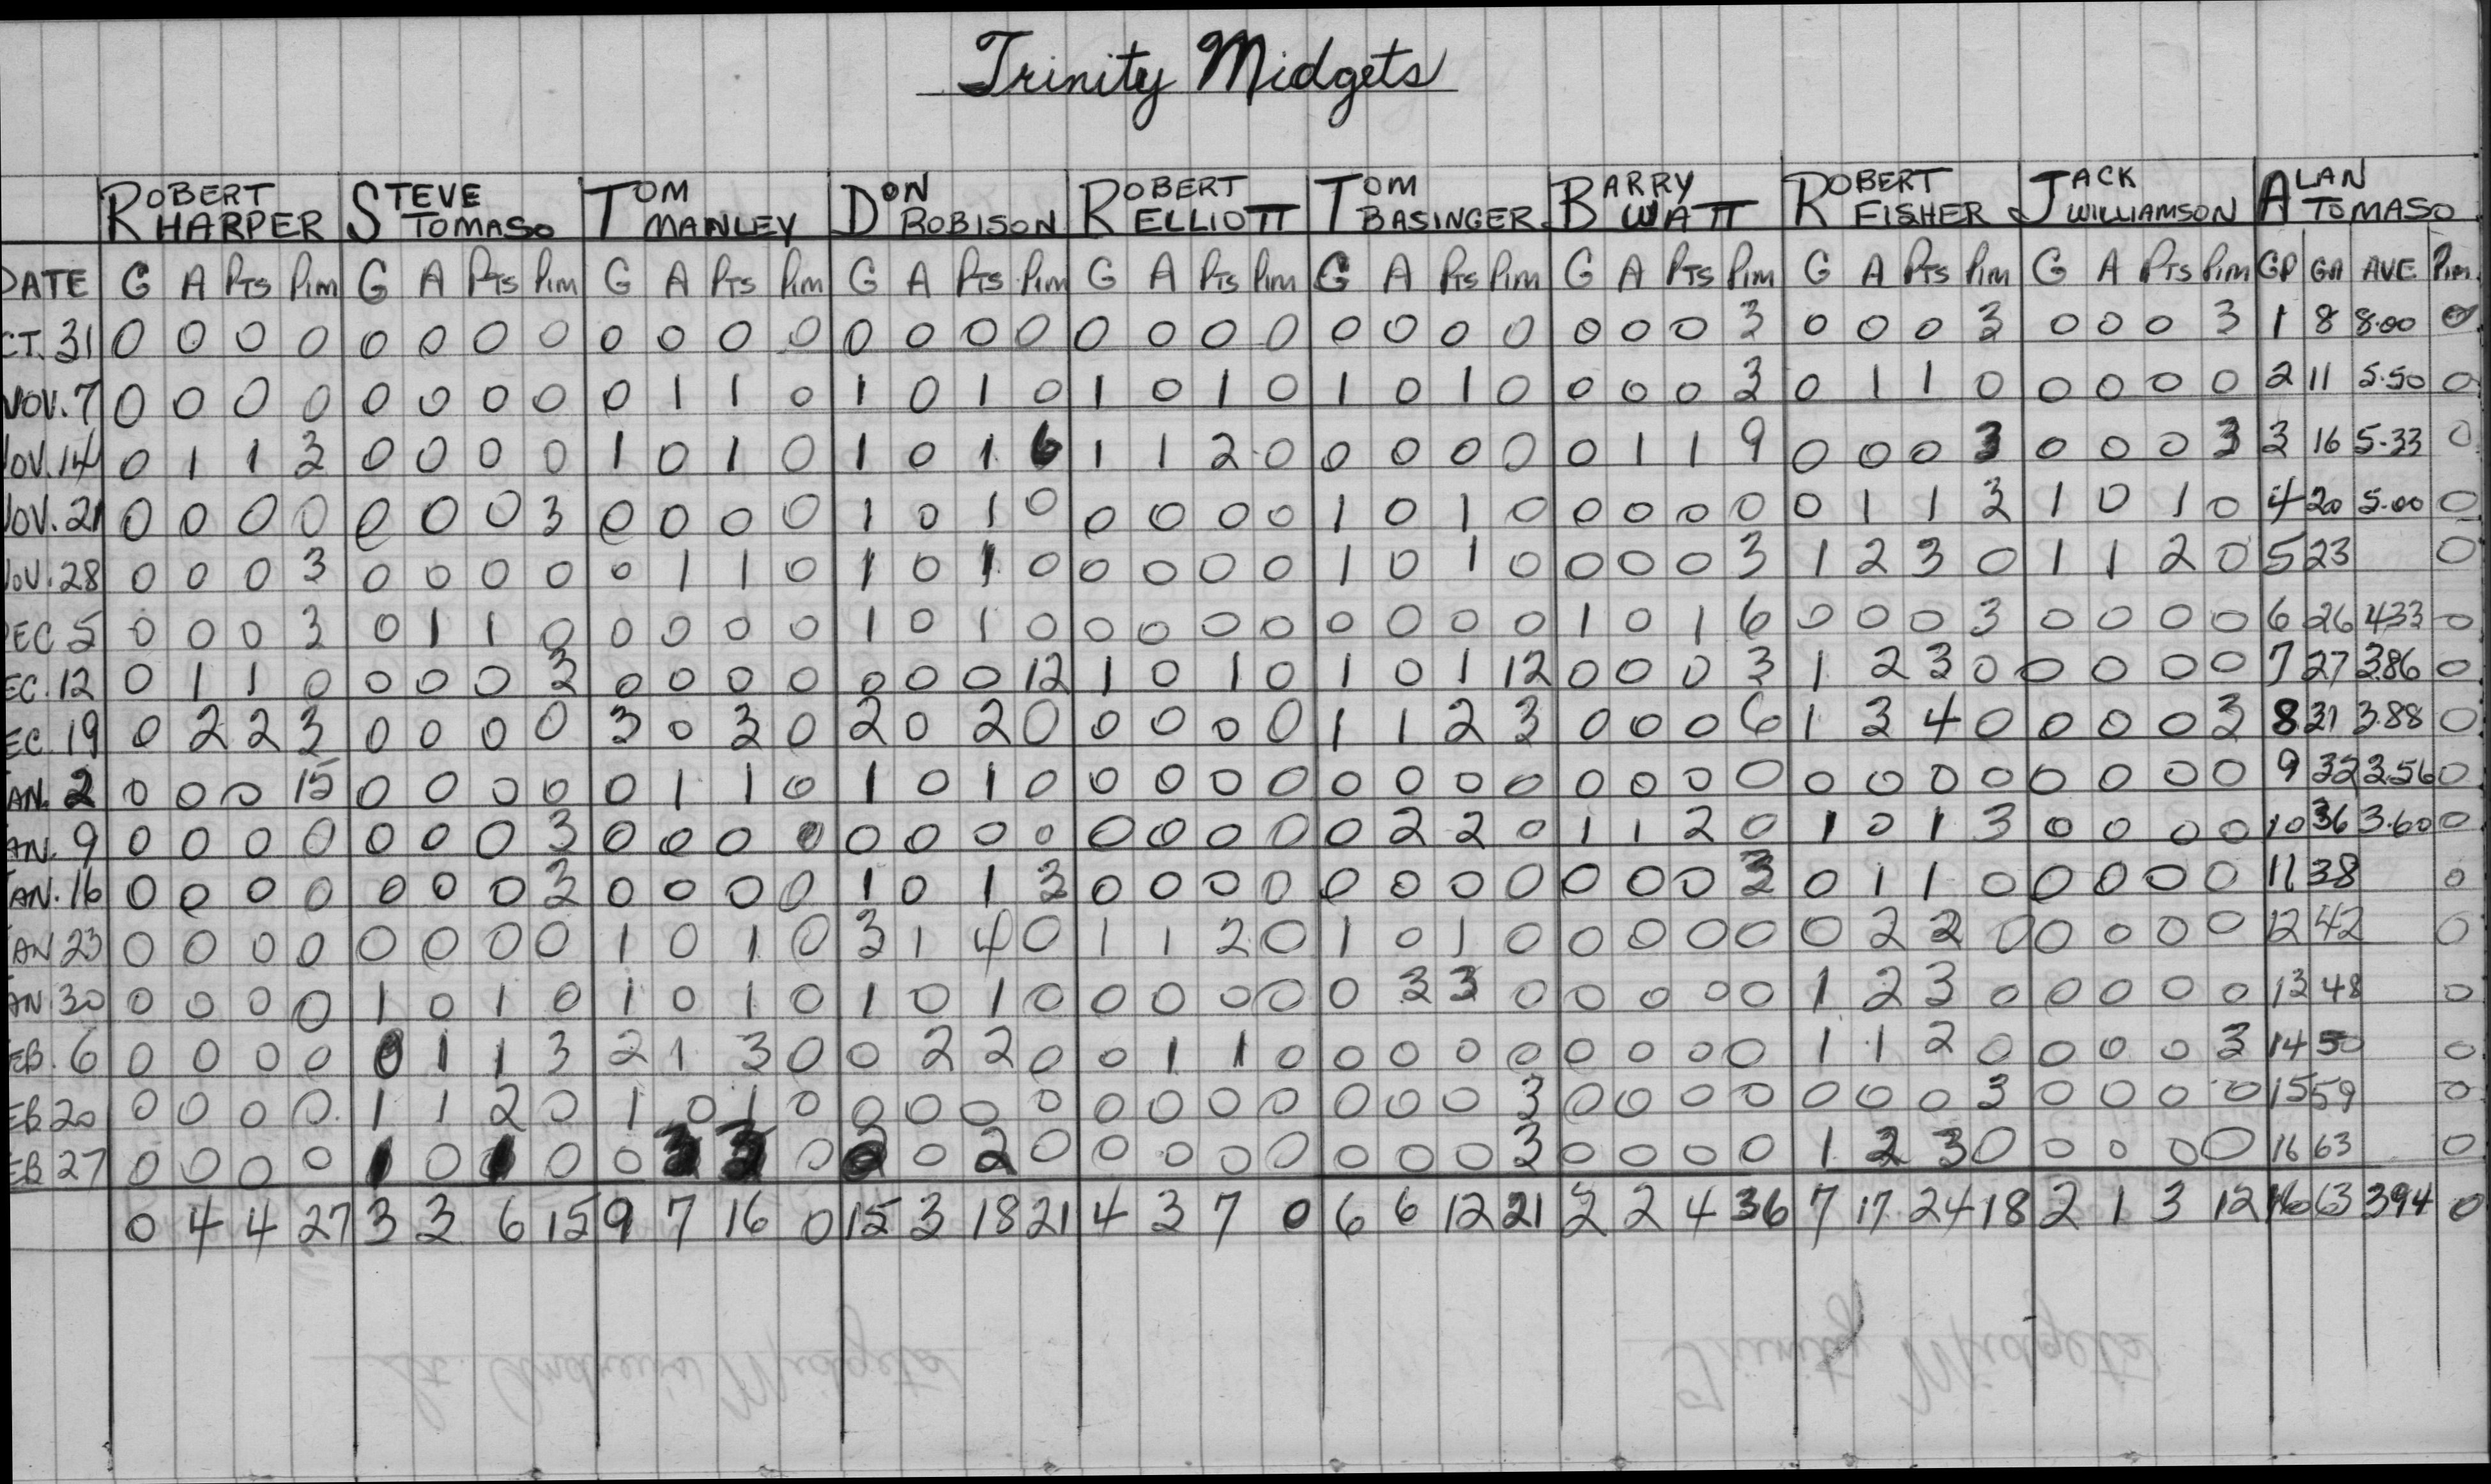 Trinity Midgets
ROBERT HARPER STEVE TOMASO TOM MANLEY DON ROBISON ROBERT ELLIOTT TOM BASINGER BARRY WATT ROBERT FISHER JACK WILLIAMSON ALAN TOMASO
DATE G A PTS PIM G A PTS PIM G A PTS PIM G A PTS PIM G A PTS PIM G A PTS PIM G A PTS PIM G A PTS PIM G A PTS PIM GP GA AVE PIM
CT. 31 0 0 0 0 0 0 0 0 0 0 0 0 0 0 0 0 0 0 0 0 0 0 0 0 0 0 0 3 0 0 0 3 0 0 0 3 1 8 8.00 0
NOV. 7 0 0 0 0 0 0 0 0 0 1 1 0 1 0 1 0 1 0 1 0 1 0 1 0 0 0 0 3 0 1 1 0 0 0 0 0 2 11 5.50 0
NOV. 14 0 1 1 3 0 0 0 0 1 0 1 0 1 0 1 6 1 1 2 0 0 0 0 0 0 1 1 9 0 0 0 3 0 0 0 3 3 16 5.33 0
NOV. 21 0 0 0 0 0 0 0 3 0 0 0 0 1 0 1 0 0 0 0 0 1 0 1 0 0 0 0 0 0 1 1 3 1 0 1 0 4 20 5.00 0
NOV. 28 0 0 0 3 0 0 0 0 0 1 1 0 1 0 1 0 0 0 0 0 1 0 1 0 0 0 0 3 1 2 3 0 1 1 2 0 5 23 0
DEC 5 0 0 0 3 0 1 1 0 0 0 0 0 1 0 1 0 0 0 0 0 0 0 0 0 1 0 1 6 0 0 0 3 0 0 0 0 6 26 4.33 0
EC. 12 0 1 1 0 0 0 0 3 0 0 0 0 0 0 0 12 1 0 1 0 1 0 1 12 0 0 0 3 1 2 3 0 0 0 0 0 7 27 3.86 0
EC. 19 0 2 2 3 0 0 0 0 3 0 3 0 2 0 2 0 0 0 0 0 1 1 2 3 0 0 0 6 1 3 4 0 0 0 0 3 8 31 3.88 0
AN. 2 0 0 0 15 0 0 0 0 0 1 1 0 1 0 1 0 0 0 0 0 0 0 0 0 0 0 0 0 0 0 0 0 0 0 0 0 9 32 3.56 0
AN. 9 0 0 0 0 0 0 0 3 0 0 0 0 0 0 0 0 0 0 0 0 0 2 2 0 1 1 2 0 1 0 1 3 0 0 0 0 10 36 3.60 0
AN. 16 0 0 0 0 0 0 0 3 0 0 0 0 1 0 1 3 0 0 0 0 0 0 0 0 0 0 0 3 0 1 1 0 0 0 0 0 11 38 0
AN 23 0 0 0 0 0 0 0 0 1 0 1 0 3 1 4 0 1 1 2 0 1 0 1 0 0 0 0 0 0 2 2 0 0 0 0 0 12 42 0
AN 30 0 0 0 0 1 0 1 0 1 0 1 0 1 0 1 0 0 0 0 0 0 3 3 0 0 0 0 0 1 2 3 0 0 0 0 0 13 48 0
EB. 6 0 0 0 0 0 1 1 3 2 1 3 0 0 2 2 0 0 1 1 0 0 0 0 0 0 0 0 0 1 1 2 0 0 0 0 3 14 50 0
EB 20 0 0 0 0 1 1 2 0 1 0 1 0 0 0 0 0 0 0 0 0 0 0 0 3 0 0 0 0 0 0 0 3 0 0 0 0 15 59 0
EB 27 0 0 0 0 1 0 1 0 0 3 3 0 2 0 2 0 0 0 0 0 0 0 0 3 0 0 0 0 1 2 3 0 0 0 0 0 16 63 0
0 4 4 27 3 3 6 15 9 7 16 0 15 3 18 21 4 3 7 0 6 6 12 21 2 2 4 36 7 17 24 18 2 1 3 12 16 63 394 0